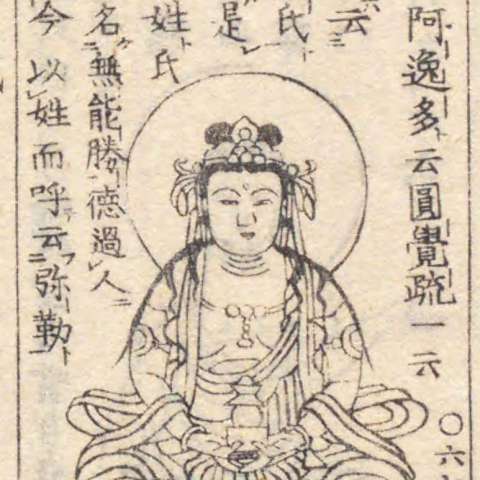 阿逸多云圓覺疏一云
〇六
云
氏
是
姓氏
名無能勝德過人
今以姓而呼云弥勒